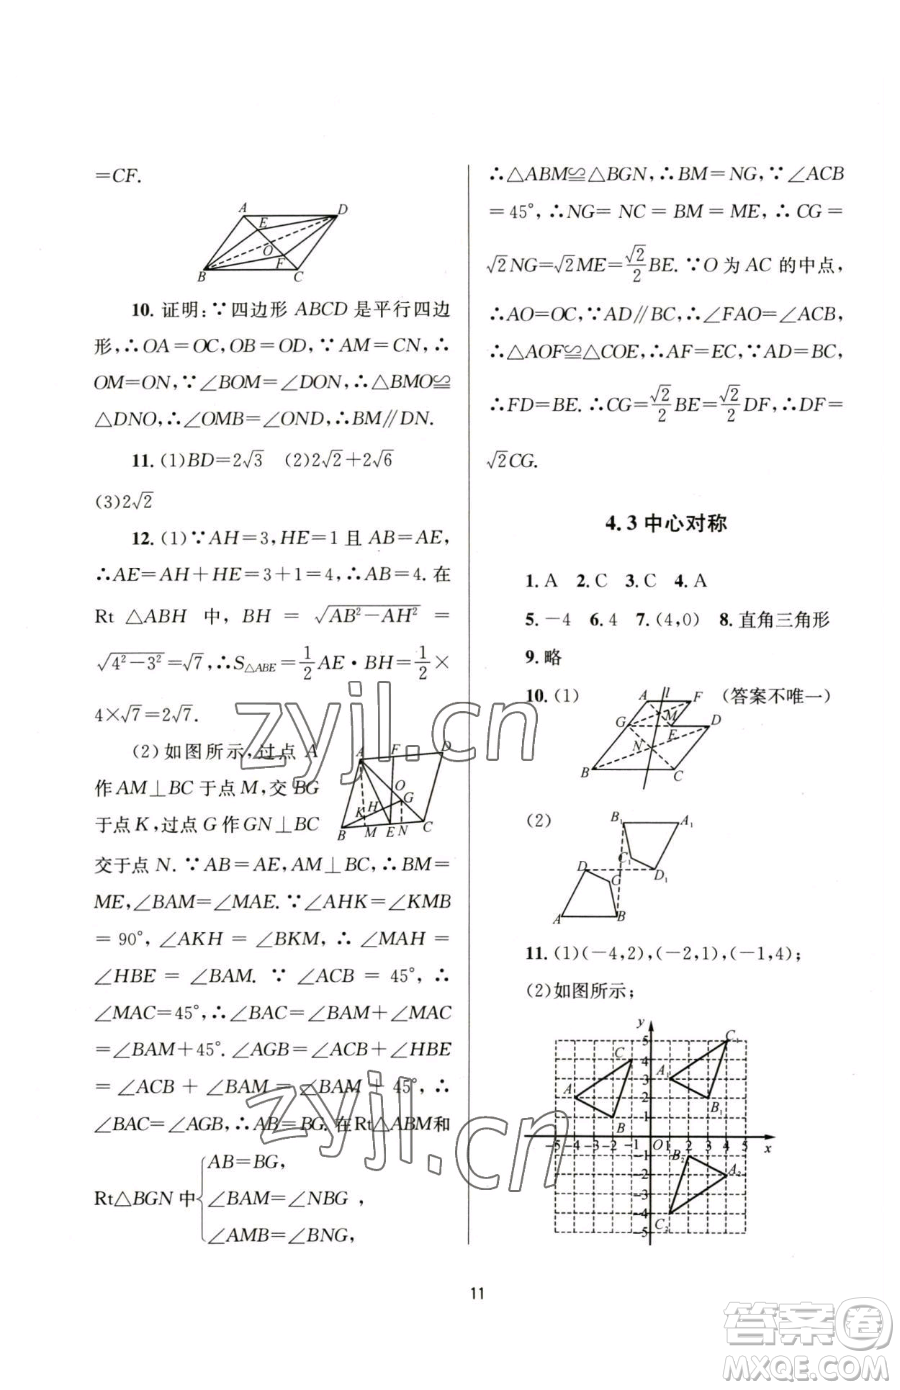 =CF.
A D E O F B C
10. 证明:∵四边形 ABCD 是平行四边
形,∴OA=OC,OB=OD,∵AM=CN,∴
OM=ON,∵∠BOM=∠DON,∴△BMO≌
△DNO,∴∠OMB=∠OND,∴BM∥DN.
11. (1)BD=2√3 (2)2√2+2√6
(3)2√2
12. (1)∵AH=3,HE=1且AB=AE,
∴AE=AH+HE=3+1=4,∴AB=4.在
Rt △ABH 中, BH = √(AB²-AH²) =
√(4²-3²)=√7,∴S△ABE=1/2 AE·BH=1/2×
4×√7=2√7.
(2)如图所示,过点 A
作AM⊥BC于点M,交BG
于点K,过点G作GN⊥BC
A F D O H K G B M E N C
交于点 N. ∵AB=AE,AM⊥BC,∴BM=
ME,∠BAM=∠MAE.∵∠AHK=∠KMB
=90°,∠AKH=∠BKM,∴∠MAH=
∠HBE=∠BAM.∵∠ACB=45°,∴
∠MAC=45°,∴∠BAC=∠BAM+∠MAC=
∠BAM+45°.∠AGB=∠ACH+∠HBE
=∠ACB+∠BAM=∠BAM+45°,∴
∠BAC=∠AGB,∴AB=BG.在Rt△ABM和
Rt△BGN中{AB=BG,
∠BAM=∠NBG,
∠AMB=∠BNG,
∴△ABM≌△BGN,∴BM=NG,∵∠ACB
=45°,∴NG=NC=BM=ME,∴CG=
√2NG=√2ME=√2/2 BE.∵O为AC的中点,
∴AO=OC,∵AD∥BC,∴∠FAO=∠ACB,
∴△AOF≌△COE,∴AF=EC,∵AD=BC,
∴FD=BE.∴CG=√2/2 BE=√2/2 DF,∴DF=
√2CG.
4.3中心对称
1. A 2. C 3. C 4. A
5. -4 6. 4 7. (4,0) 8. 直角三角形
9. 略
10. (1) (答案不唯一)
A l F G M E D N B C
(2)
B₁ A₁ C₁ D₁ D C A B
11. (1)(-4,2),(-2,1),(-1,4);
(2)如图所示;
y
5 4 3 2 1
A B C A₁ B₁ C₁
-5 -4 -3 -2 -1 O 1 2 3 4 5 x
-1 -2 -3 -4 -5
B₂ A₂ C₂
11
zyjl.cn
zyjl.cn
答案圈
MXQE.COM